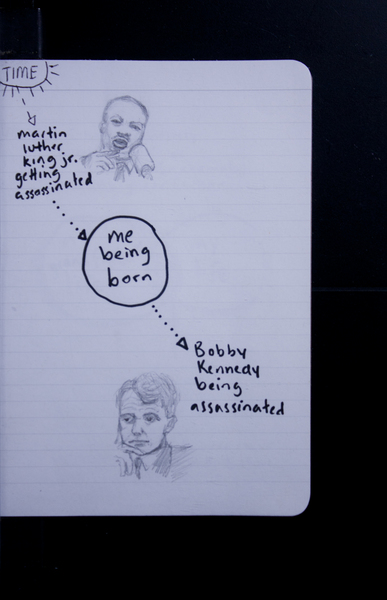 TIME
martin
luther
king jr.
getting
assassinated
me
being
born
Bobby
Kennedy
being
assassinated